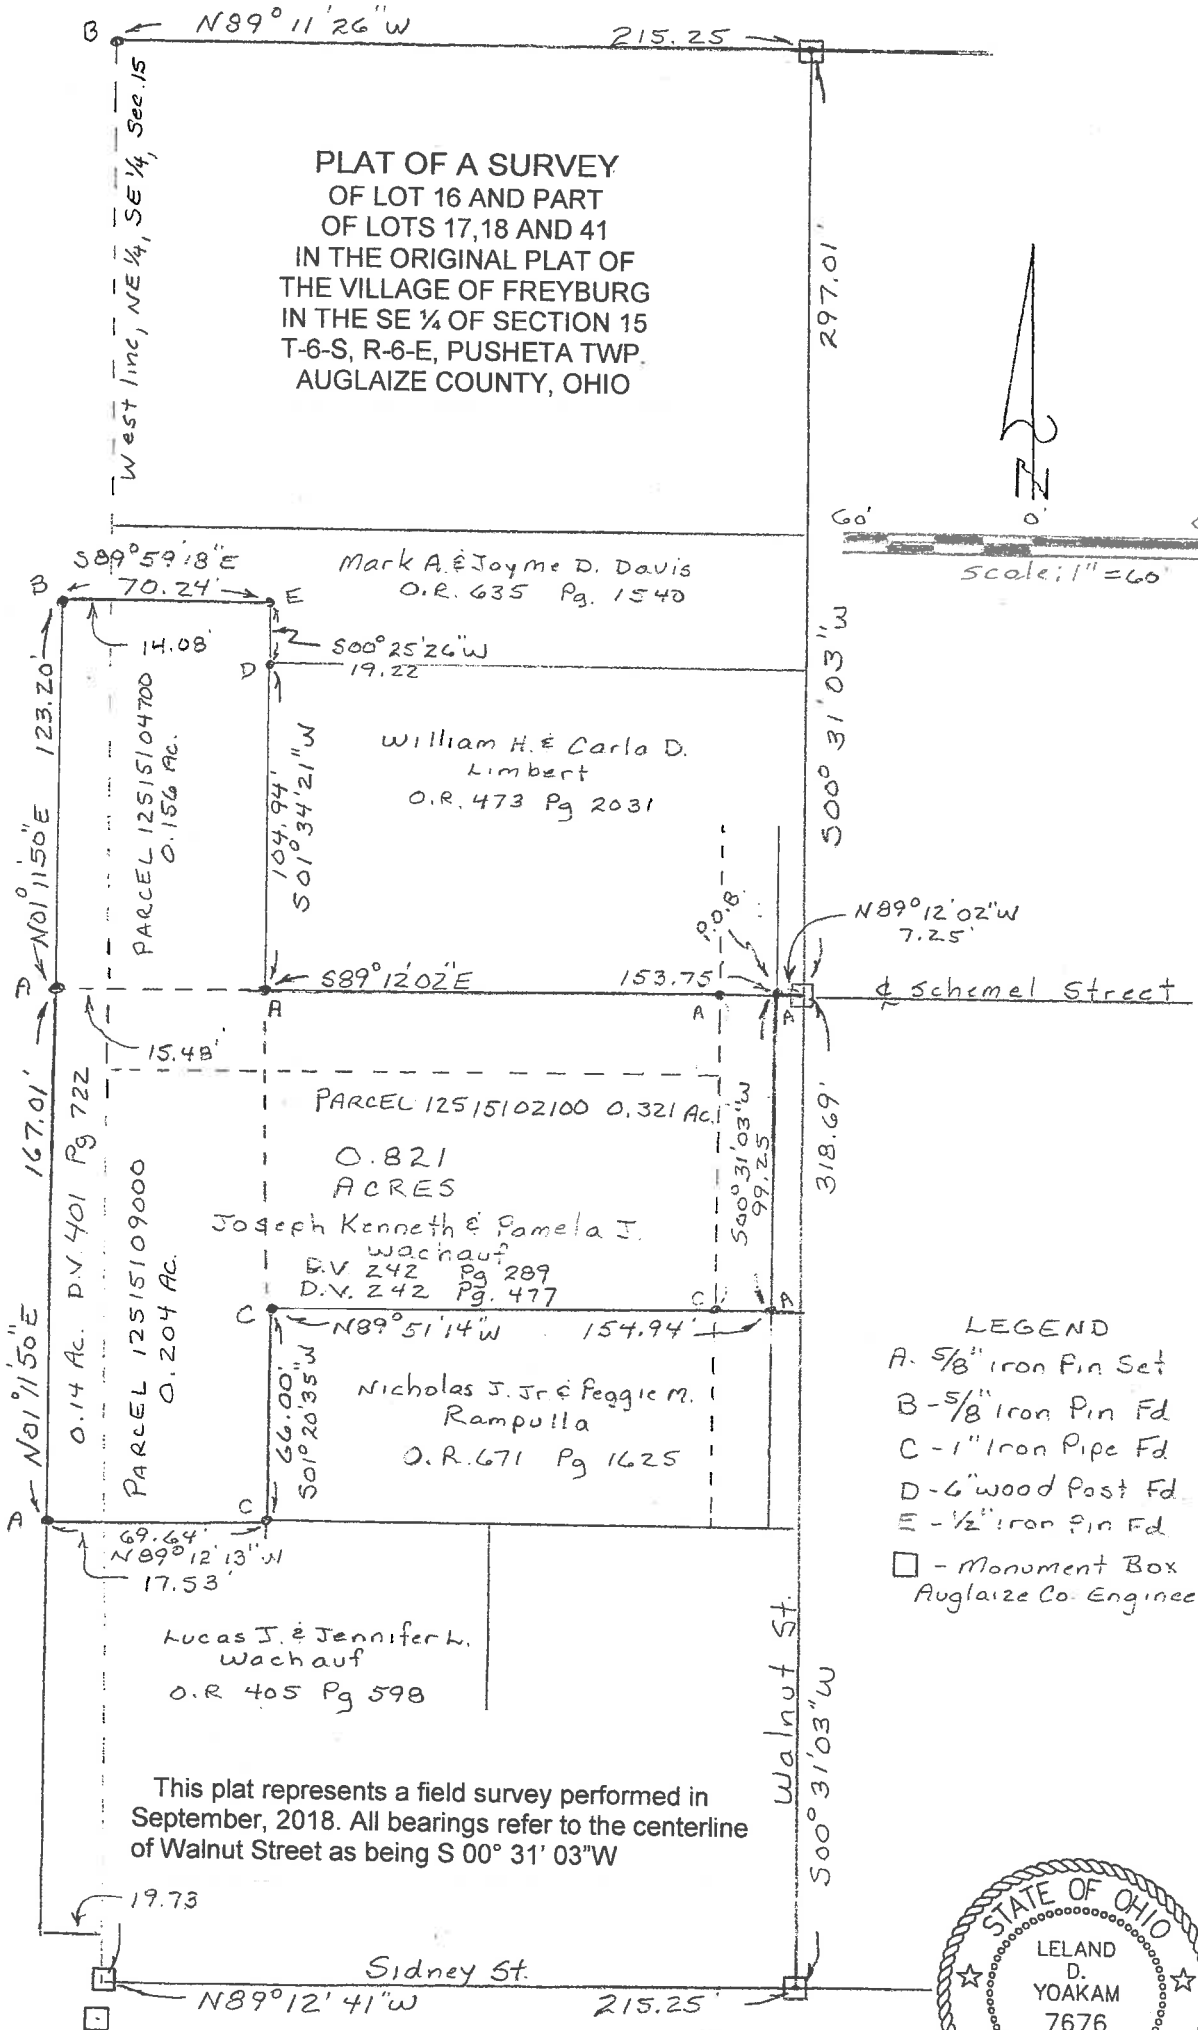 B
N89°11'26"W
215.25
West line, NE 1/4, SE 1/4, Sec. 15
PLAT OF A SURVEY
OF LOT 16 AND PART
OF LOTS 17,18 AND 41
IN THE ORIGINAL PLAT OF
THE VILLAGE OF FREYBURG
IN THE SE ¼ OF SECTION 15
T-6-S, R-6-E, PUSHETA TWP.
AUGLAIZE COUNTY, OHIO
297.01'
N
60' 0'
Scale: 1" = 60'
S89°59'18"E
70.24'
B
E
14.08'
Mark A. & Jayme D. Davis
O.R. 635 Pg. 1540
S00°25'26"W
19.22
D
123.20'
N01°11'50"E
PARCEL 12515104700
0.156 Ac.
104.94'
S01°34'21"W
William H. & Carla D.
Limbert
O.R. 473 Pg 2031
S00°31'03"W
P.O.B.
N89°12'02"W
7.25'
D
A
S89°12'02"E
153.75
A
A
℄ Schemel Street
15.48'
167.01'
0.14 Ac. D.V. 401 Pg 722
N01°11'50"E
PARCEL 12515109000
0.204 Ac.
PARCEL 12515102100 0.321 Ac.
0.821
ACRES
Joseph Kenneth & Pamela J.
Wachauf
D.V 242 Pg 289
D.V. 242 Pg. 477
S00°31'03"W
99.25
318.69'
C
N89°51'14"W
154.94'
C
A
66.00'
S01°20'35"W
Nicholas J. Jr & Peggie M.
Rampulla
O.R. 671 Pg 1625
LEGEND
A. 5/8" Iron Pin Set
B - 5/8" Iron Pin Fd
C - 1" Iron Pipe Fd
D - 6" wood Post Fd
E - 1/2" iron Pin Fd
□ - Monument Box
Auglaize Co. Enginee
A
C
69.64'
N89°12'13"W
17.53'
Lucas J. & Jennifer L.
Wachauf
O.R 405 Pg 598
Walnut St.
S00°31'03"W
This plat represents a field survey performed in
September, 2018. All bearings refer to the centerline
of Walnut Street as being S 00° 31' 03"W
19.73
Sidney St.
N89°12'41"W
215.25'
STATE OF OHIO
LELAND
D.
YOAKAM
7676